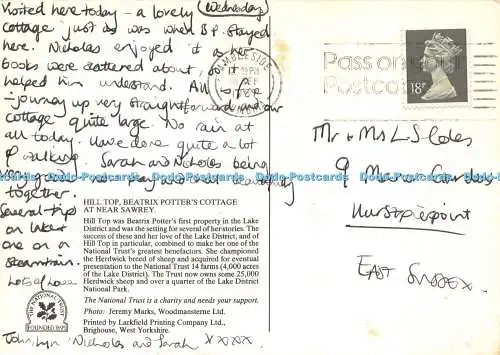 Visited here today – a lovely (Wednesday)
cottage just as was when B.P. stayed
here. Nicholas enjoyed it as her
books were scattered about, 
helped him understand. All is fine
– journey up very straightforward and our
cottage quite large. No rain at
all today. Have done quite a lot
of walking. Sarah and Nicholas being
very good and play and read beautifully
together.
Several trips
on lakes
one on a
steamtrain.
Lots of love
John, Lyn Nicholas and Sarah xxxxx
HILL TOP, BEATRIX POTTER'S COTTAGE
AT NEAR SAWREY.
Hill Top was Beatrix Potter's first property in the Lake
District and was the setting for several of her stories. The
success of these and her love of the Lake District, and of
Hill Top in particular, combined to make her one of the
National Trust's greatest benefactors. She championed
the Herdwick breed of sheep and acquired for eventual
presentation to the National Trust 14 farms (4,000 acres
of the Lake District). The Trust now owns some 25,000
Herdwick sheep and over a quarter of the Lake District
National Park.
The National Trust is a charity and needs your support.
Photo: Jeremy Marks, Woodmansterne Ltd.
Printed by Larkfield Printing Company Ltd.,
Brighouse, West Yorkshire.
THE NATIONAL TRUST
FOUNDED 1895
AMBLESIDE
Pass on
Postco
18P
Mr & Mrs L S Coles
9 Manor Gardens
Hurstpierpoint
EAST SUSSEX
Dodo-Postcards
www.dodo-postcards.com